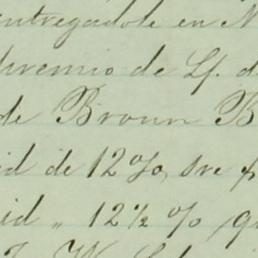 entregadole en N
premio de Lf. d
de Broun B
id de 12%, sre p
id „ 12½ % q